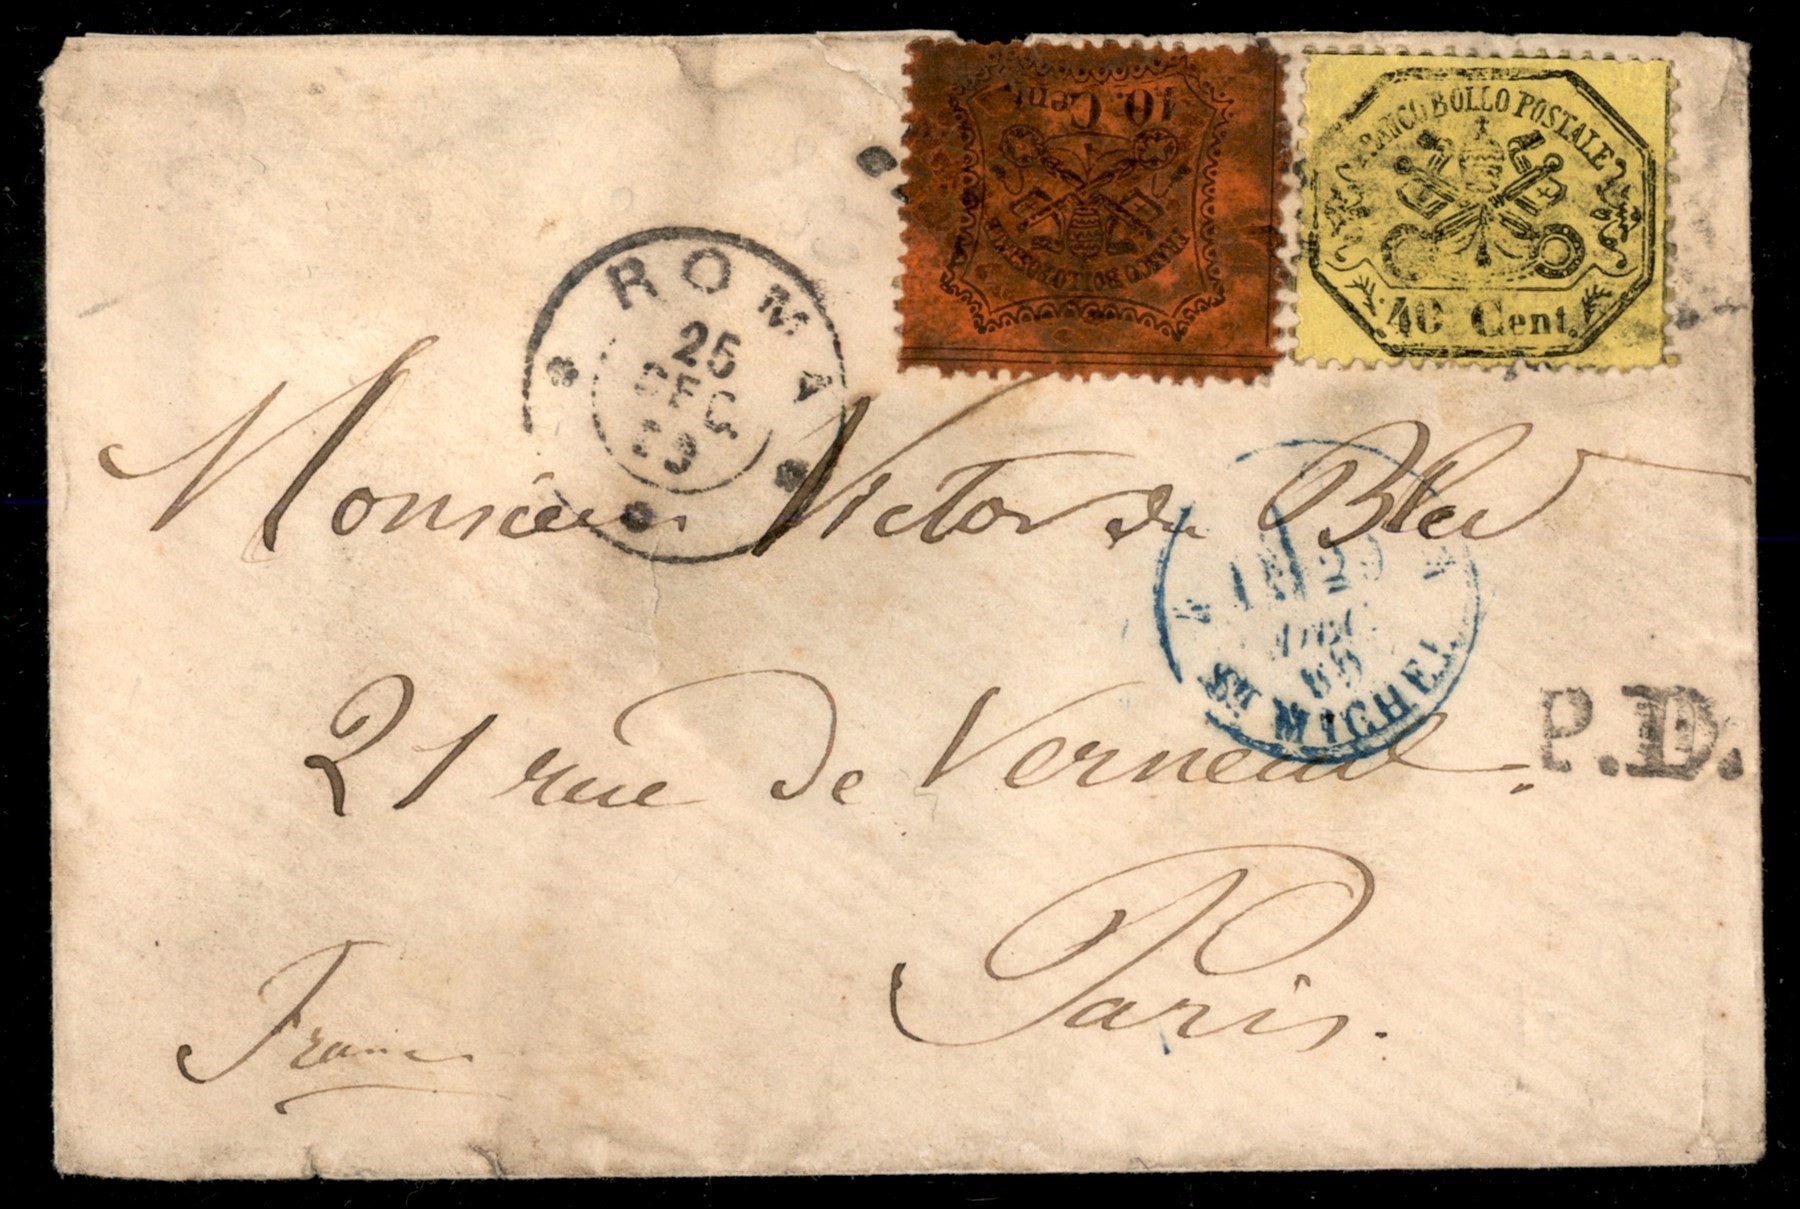 10. Cent.
FRANCO BOLLO POSTALE
FRANCO BOLLO POSTALE
40 Cent.
ROMA
25
DEC
69
Monsieur Victor du Bled
21 rue de Verneuil.
P.D.
Paris.
France
29
DEC.
69
ST MICHEL